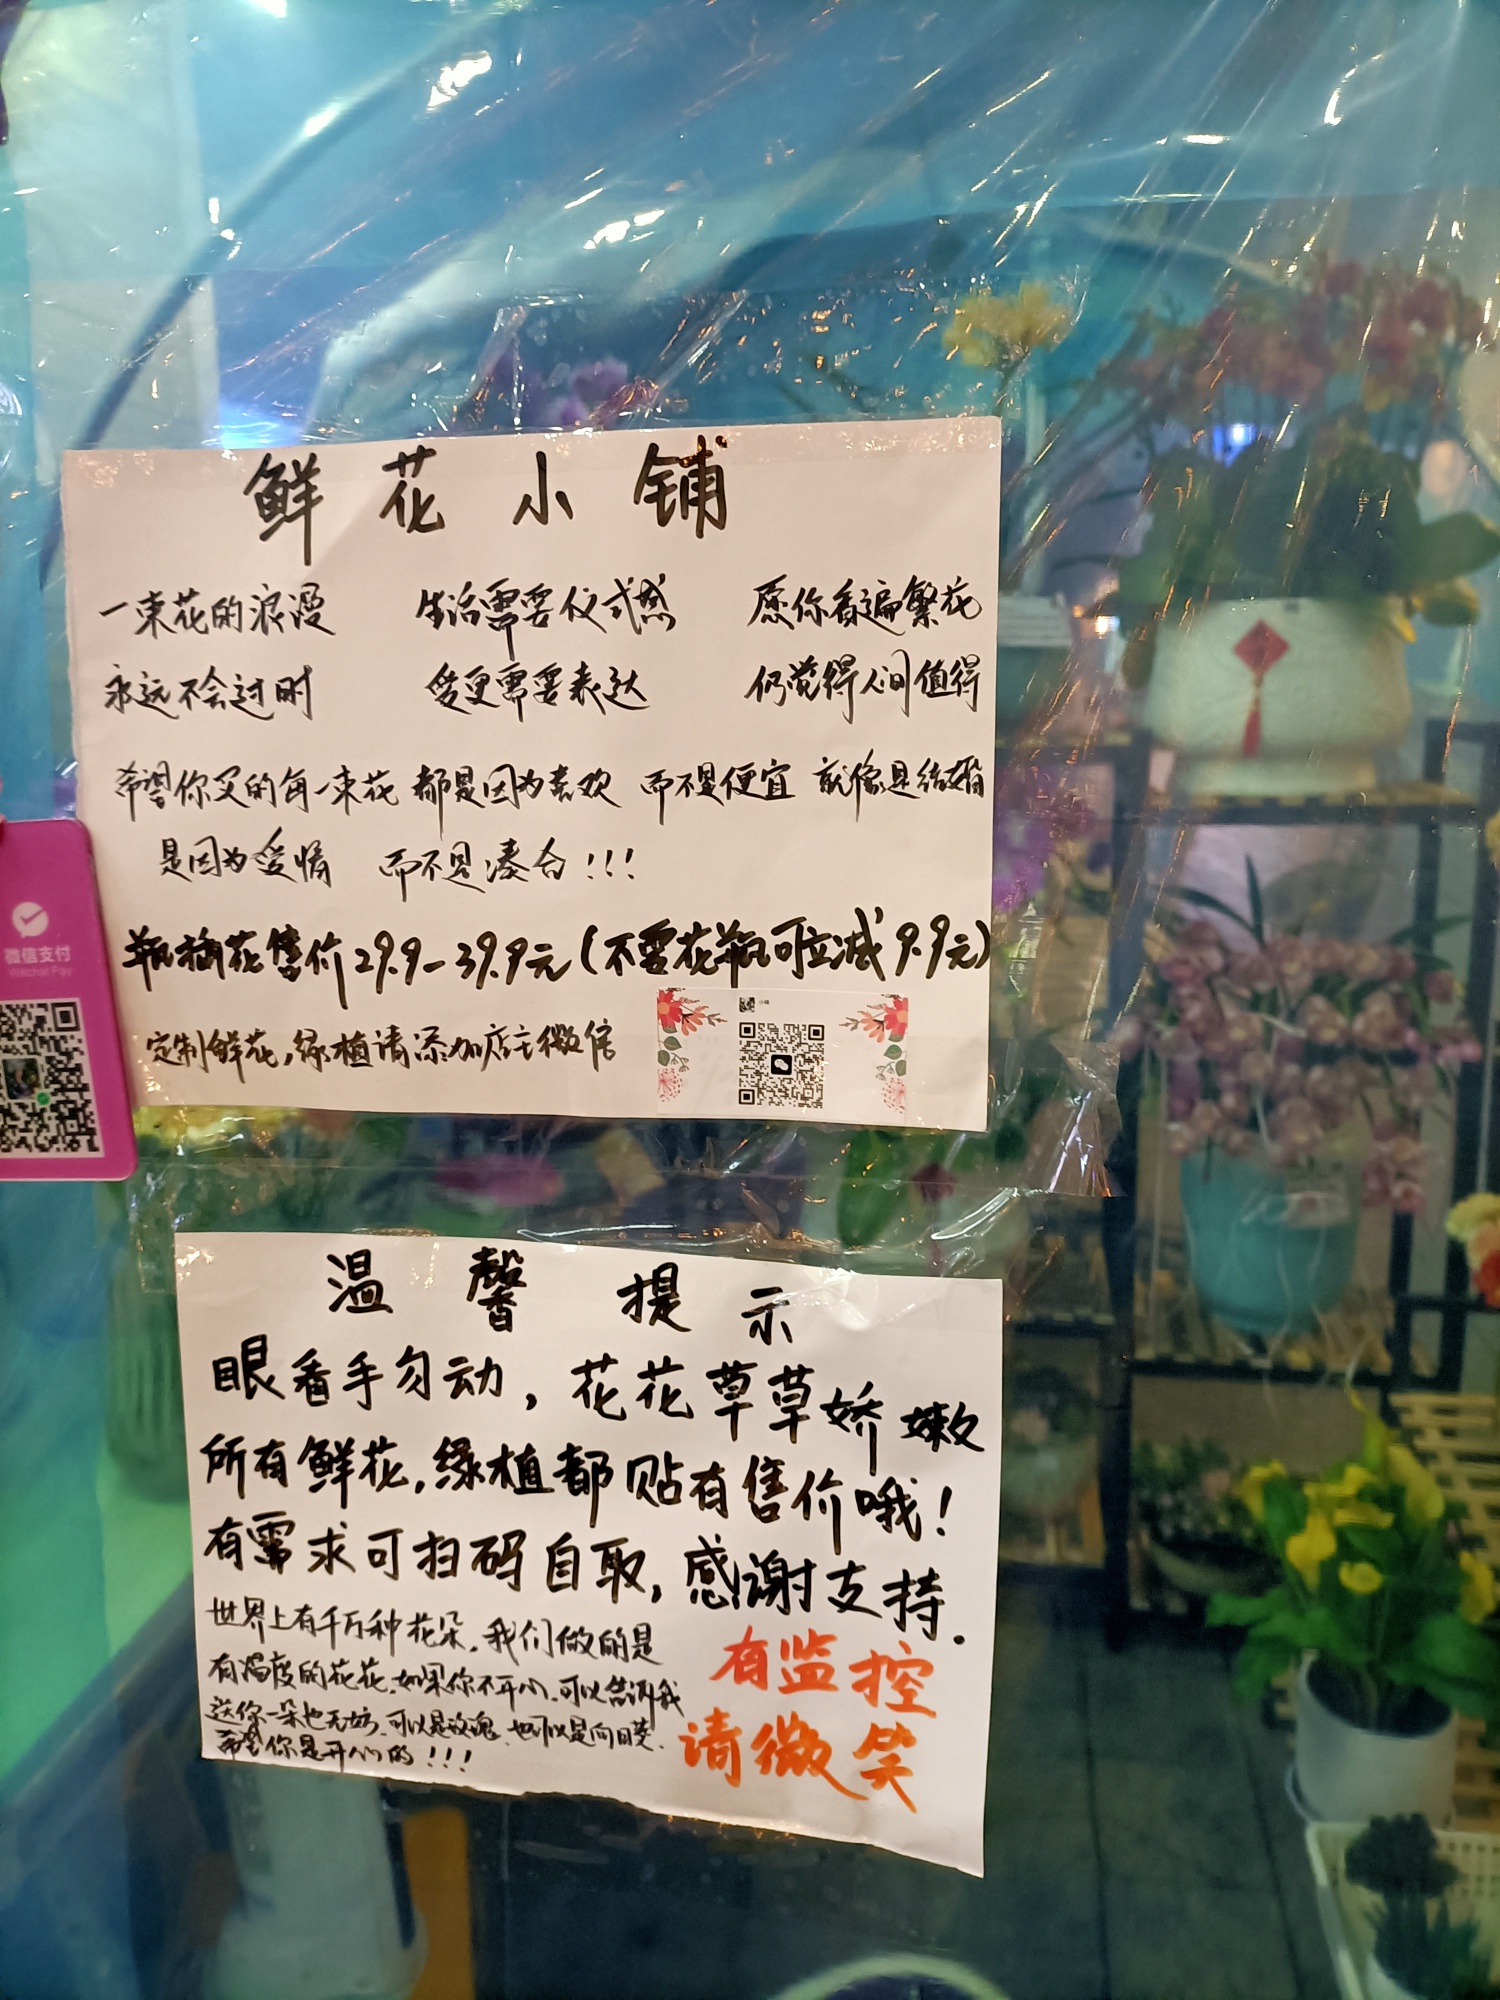 鲜花小铺
一束花的浪漫 生活需要仪式感 愿你看遍繁花
永远不会过时 爱更需要表达 仍觉得人间值得
希望你买的每一束花 都是因为喜欢 而不是便宜 就像是结婚
是因为爱情 而不是凑合!!!
瓶插花售价29.9-39.9元(不要花瓶可立减9.9元)
定制鲜花,绿植请添加店主微信
微信支付
WeChat Pay
温馨提示
眼看手勿动,花花草草娇嫩
所有鲜花,绿植都贴有售价哦!
有需求可扫码自取,感谢支持.
世界上有千万种花朵,我们做的是
有温度的花花,如果你不开心,可以告诉我
送你一朵也无妨,可以是玫瑰,也可以是向日葵.
希望你是开心的!!!
有监控
请微笑